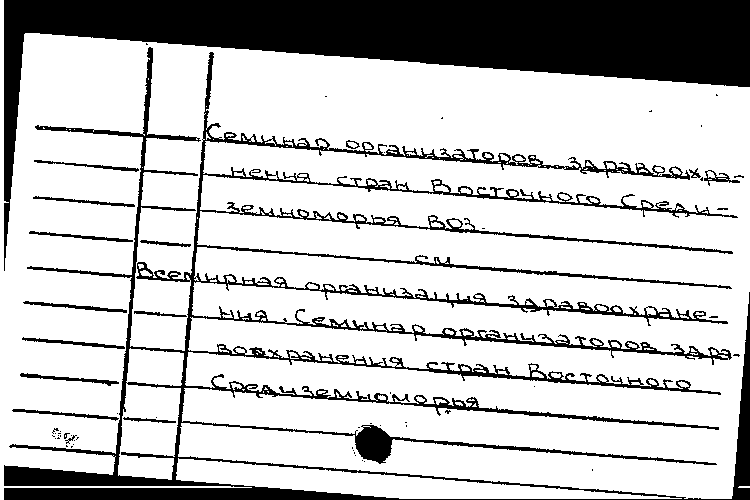 Семинар организаторов здравоохра-
нения стран Восточного Среди-
земноморья ВОЗ.
см
Всемирная организация здравоохране-
ния. Семинар организаторов здра-
воохранения стран Восточного
Средиземноморья